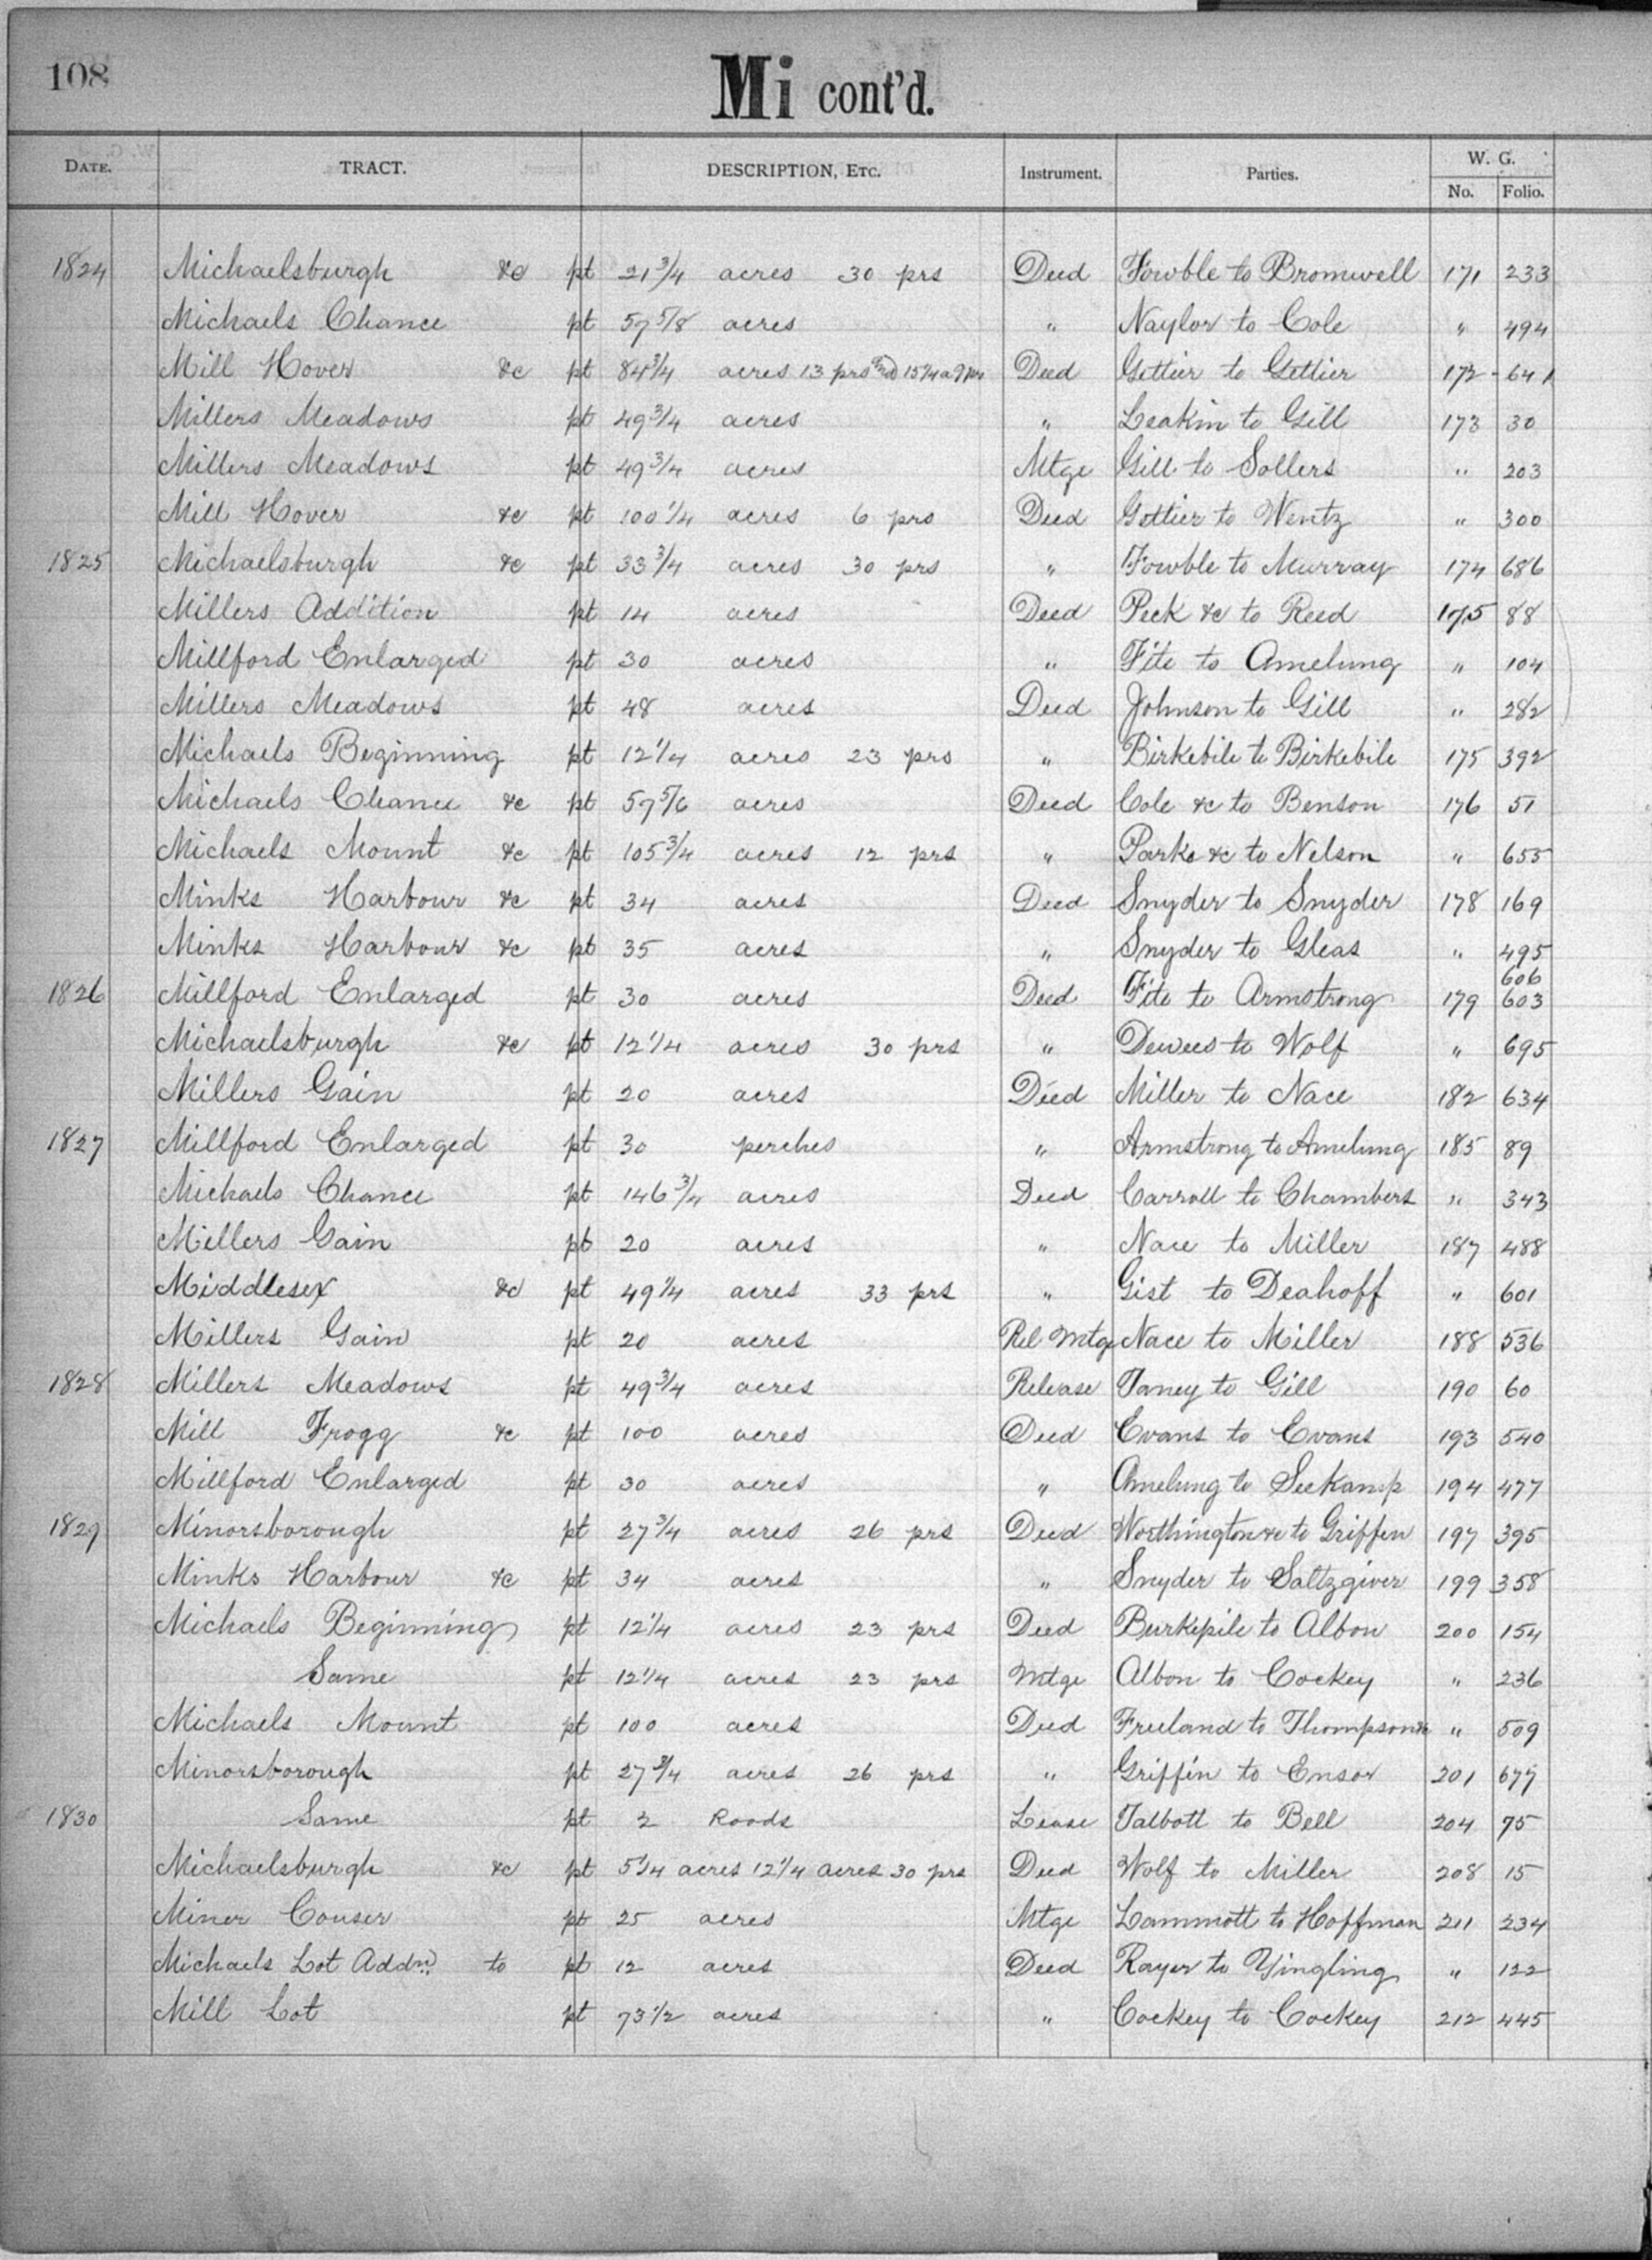 108
Mi cont'd.
DATE. TRACT. DESCRIPTION, ETC. Instrument. Parties. W. G. No. Folio.
1824 Michaelsburgh &c pt 21 3/4 acres 30 prs Deed Fowble to Bromwell 171 233
Michaels Chance pt 57 5/8 acres " Naylor to Cole " 494
Mill Hover &c pt 84 3/4 acres 13 prs Deed Gettier to Gettier 172 641
Millers Meadows pt 49 3/4 acres " Leakin to Gill 173 30
Millers Meadows pt 49 3/4 acres Mtge Gill to Sollers " 203
Mill Hover &c pt 100 1/4 acres 6 prs Deed Gettier to Wentz " 300
1825 Michaelsburgh &c pt 33 3/4 acres 30 prs " Fowble to Murray 174 686
Millers Addition pt 14 acres Deed Peck &c to Reed 175 88
Millford Enlarged pt 30 acres " Fite to Amelung " 104
Millers Meadows pt 48 acres Deed Johnson to Gill " 282
Michaels Beginning pt 12 1/4 acres 23 prs " Birkebile to Birkebile 175 392
Michaels Chance &c pt 57 5/6 acres Deed Cole &c to Benson 176 51
Michaels Mount &c pt 105 3/4 acres 12 prs " Parks &c to Nelson " 655
Minks Harbour &c pt 34 acres Deed Snyder to Snyder 178 169
Minks Harbour &c pt 35 acres " Snyder to Gleas " 495
606
1826 Millford Enlarged pt 30 acres Deed Fite to Armstrong 179 603
Michaelsburgh &c pt 12 1/4 acres 30 prs " Dewees to Wolf " 695
Millers Gain pt 20 acres Deed Miller to Nace 182 634
1827 Millford Enlarged pt 30 perches " Armstrong to Amelung 185 89
Michaels Chance pt 146 3/4 acres Deed Carroll to Chambers " 343
Millers Gain pt 20 acres " Nace to Miller 187 488
Middlesex &c pt 49 1/4 acres 33 prs " Gist to Deahoff " 601
Millers Gain pt 20 acres Rel Mtge Nace to Miller 188 536
1828 Millers Meadows pt 49 3/4 acres Release Taney to Gill 190 60
Mill Frogg &c pt 100 acres Deed Evans to Evans 193 540
Millford Enlarged pt 30 acres " Amelung to Seekamp 194 477
1829 Minorsborough pt 27 3/4 acres 26 prs Deed Worthington &c to Griffen 197 395
Minks Harbour &c pt 34 acres " Snyder to Saltzgiver 199 358
Michaels Beginning pt 12 1/4 acres 23 prs Deed Burkepile to Albon 200 154
Same pt 12 1/4 acres 23 prs Mtge Albon to Cockey " 236
Michaels Mount pt 100 acres Deed Freeland to Thompson &c " 509
Minorsborough pt 27 3/4 acres 26 prs " Griffin to Ensor 201 677
1830 Same pt 2 Roods Lease Talbott to Bell 204 75
Michaelsburgh &c pt 5 1/4 acres 12 1/4 acres 30 prs Deed Wolf to Miller 208 15
Miner Couser pt 25 acres Mtge Lammott to Hoffman 211 234
Michaels Lot Addn. to pt 12 acres Deed Rayer to Yingling " 122
Mill Lot pt 73 1/2 acres " Cockey to Cockey 212 445